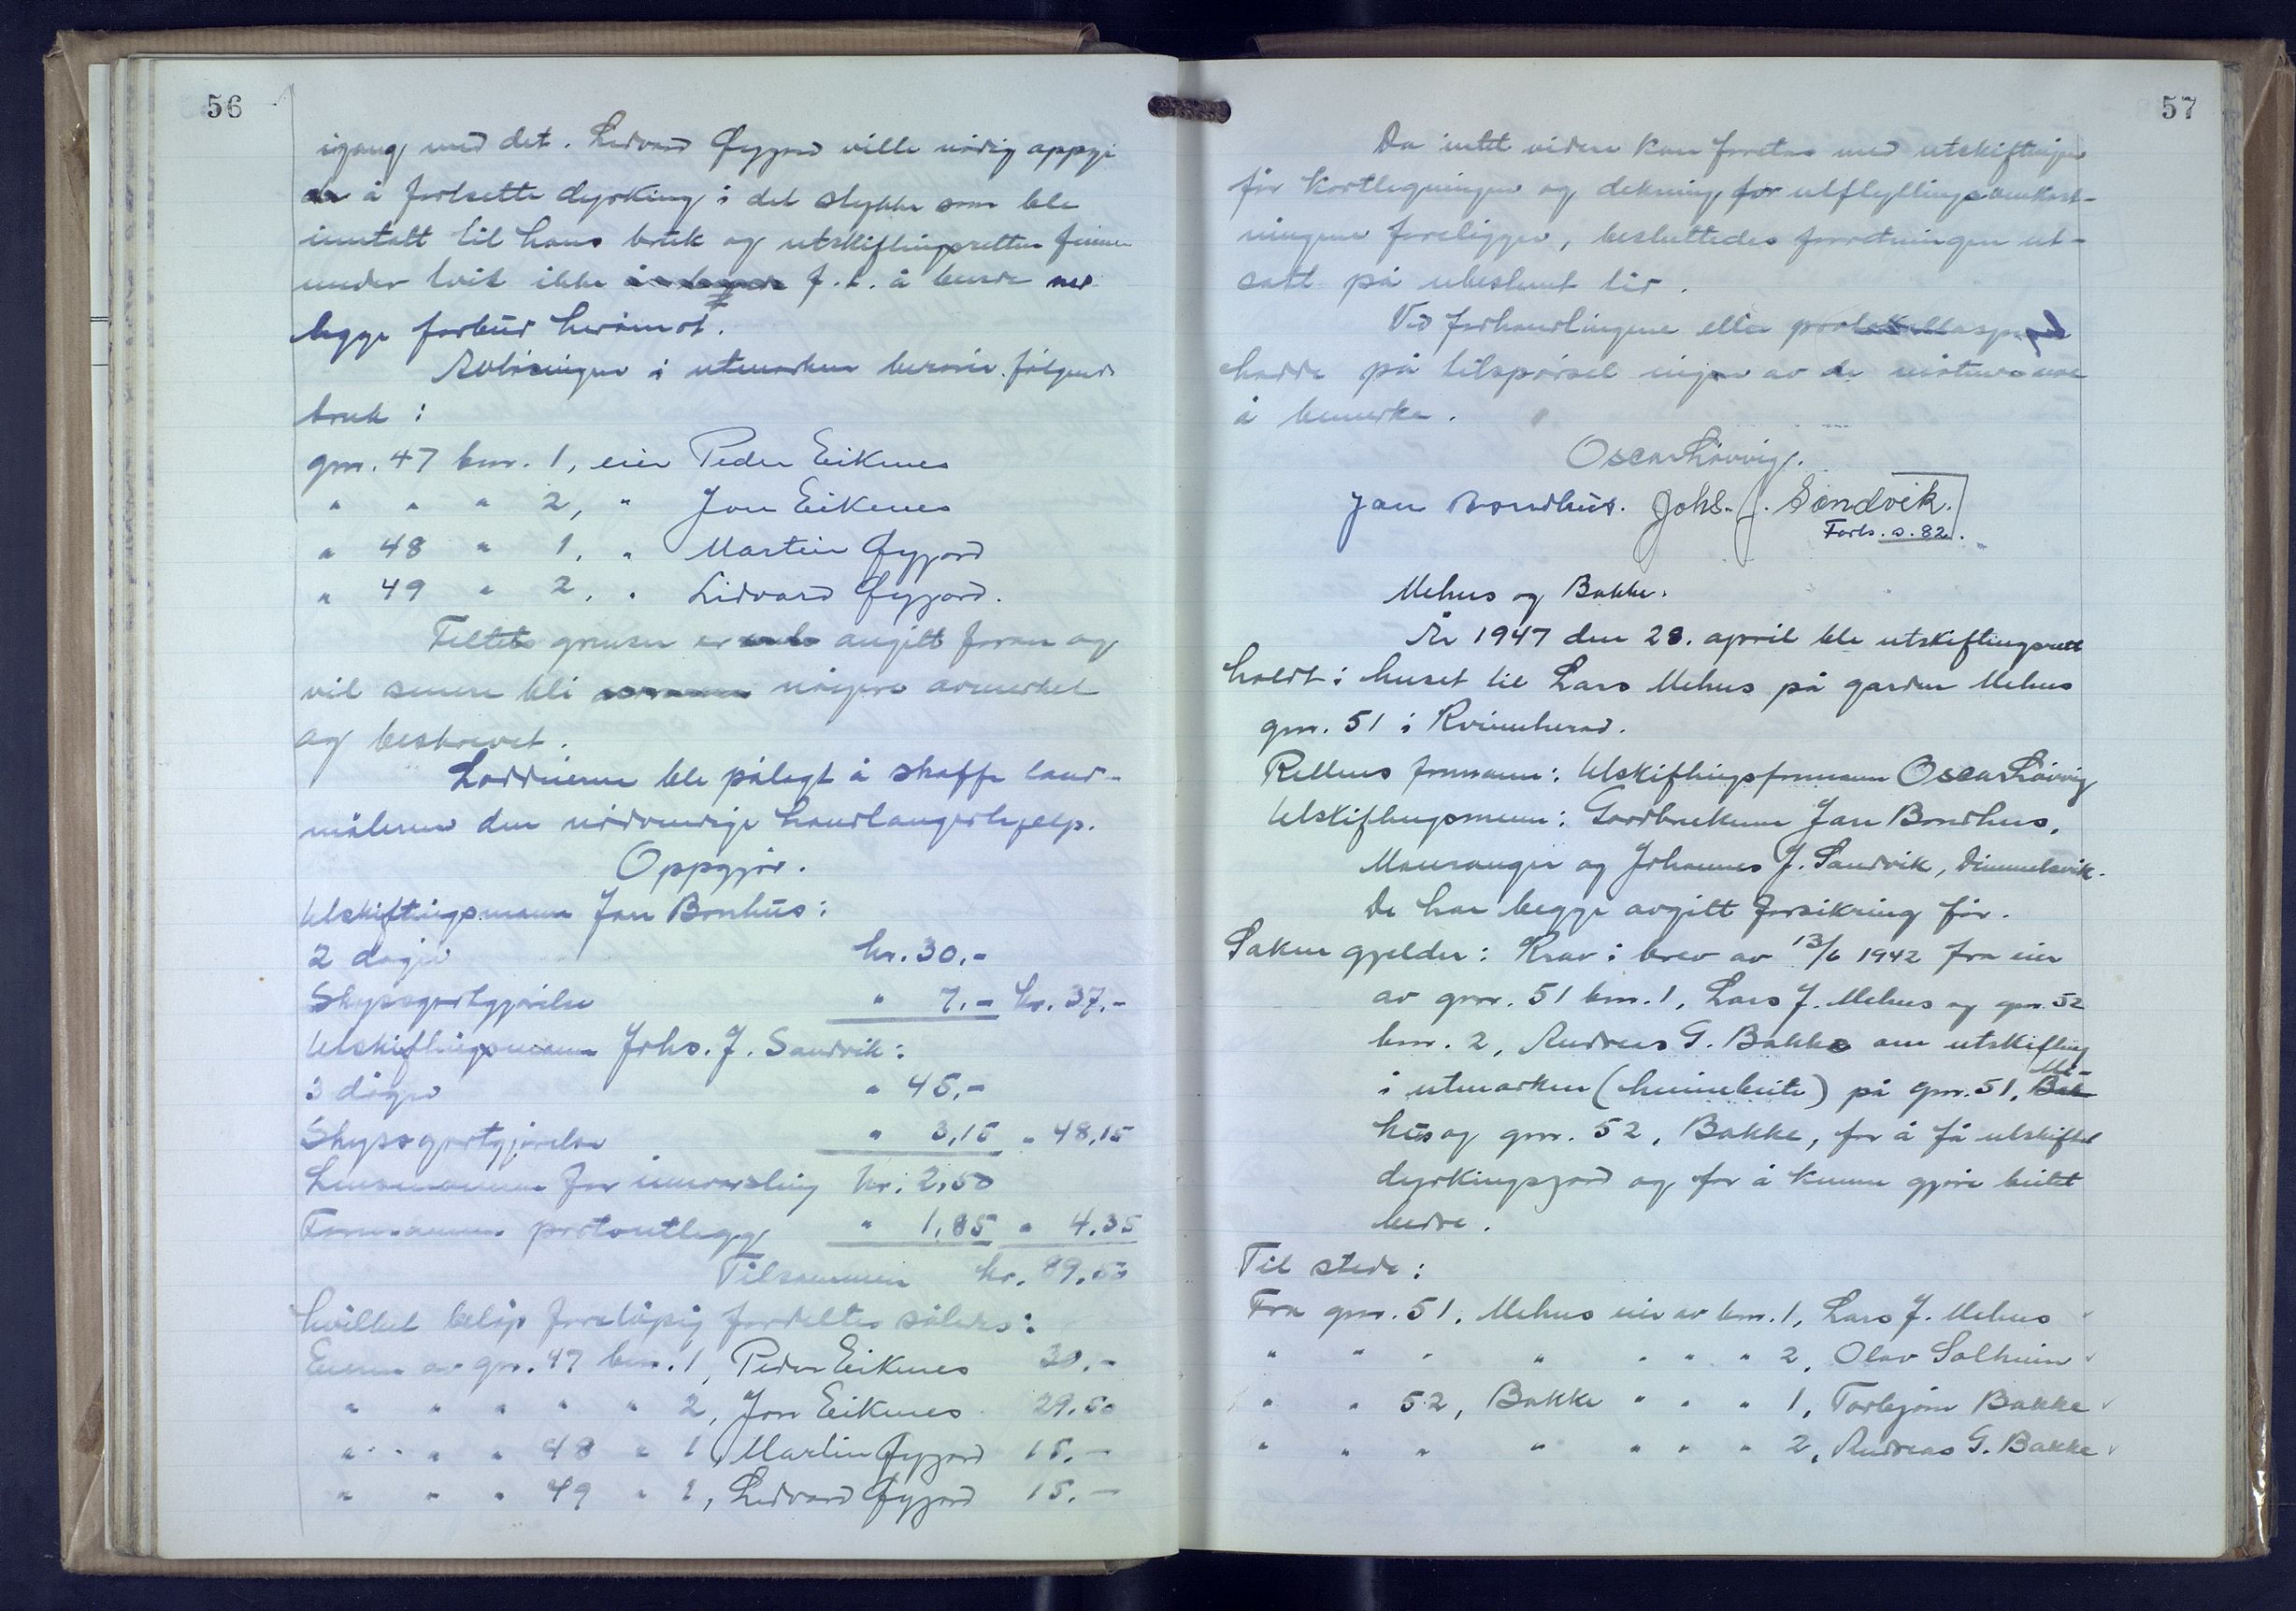 56
igang med det. Lidvard Øygjord ville nødig oppgi
å fortsette dyrking i det stykke som ble
inntatt til hans bruk og utskiftingsretten finner
under tvil ikke f. t. å burde ned
legge forbud herimot.
Avløsningen i utmarken berører følgende
bruk:
gnr. 47 bnr. 1, eier Peder Eiknes
" " " 2, " Jon Eiknes
" 48 " 1, " Martin Øygjord
" 49 " 2, " Lidvard Øygjord.
Feltets grenser er angitt foran og
vil senere bli nøyere avmerket
og beskrevet.
Loddeierne ble pålagt å skaffe land-
måleren den nødvendige handlangerhjelp.
Oppgjør.
Utskiftingsmann Jan Bonhus:
2 dager kr. 30,-
Skyssgodtgjørelse " 7,- kr. 37,-
Utskiftingsmann Johs. J. Sandvik:
3 dager " 45,-
Skyssgodtgjørelse " 3,15 " 48,15
Lensmannen for innvarsling kr. 2,50
Formannens portoutlegg " 1,85 " 4,35
Tilsammen kr. 89,50
hvilket beløp foreløpig fordeltes således:
Eieren av gnr. 47 bnr. 1, Peder Eiknes 30,-
" " " " " 2, Jon Eiknes 29,50
" " " 48 " 1, Martin Øygjord 15,-
" " " 49 " 2, Lidvard Øygjord 15,-
57
Da intet videre kan foretas med utskiftningen
før kartlegningen og dekning for utflyttingsomkost-
ningene foreligger, besluttedes forretningen ut-
satt på ubestemt tid.
Ved forhandlingene eller protokollasjonen
hadde på tilspørsel ingen av de møtende noe
å bemerke.
Oscar Løvvig.
Jan Bondhus. Johs. J. Sandvik.
Forts. s. 82.
Mehus og Bakke.
År 1947 den 28. april ble utskiftingsrett
holdt i huset til Lars Mehus på garden Mehus
gnr. 51 i Kvinnherad.
Rettens formann: Utskiftingsformann Oscar Løvvig
Utskiftingsmenn: Gardbrukerne Jan Bondhus,
Mauranger og Johannes J. Sandvik, Dimmelsvik.
De har begge avgitt forsikring før.
Saken gjelder: Krav i brev av 13/6 1942 fra eier
av gnr. 51 bnr. 1, Lars J. Mehus og gnr. 52
bnr. 2, Andreas G. Bakke om utskifting
i utmarken (heimebeite) på gnr. 51, Bak Me-
hus og gnr. 52, Bakke, for å få utskiftet
dyrkingsjord og for å kunne gjøre beitet
bedre.
Til stede:
Fra gnr. 51, Mehus eier av bnr. 1, Lars J. Mehus
" " " " " " " 2, Olav Solheim
" " 52, Bakke " " " 1, Torbjørn Bakke
" " " " " " " 2, Andreas G. Bakke